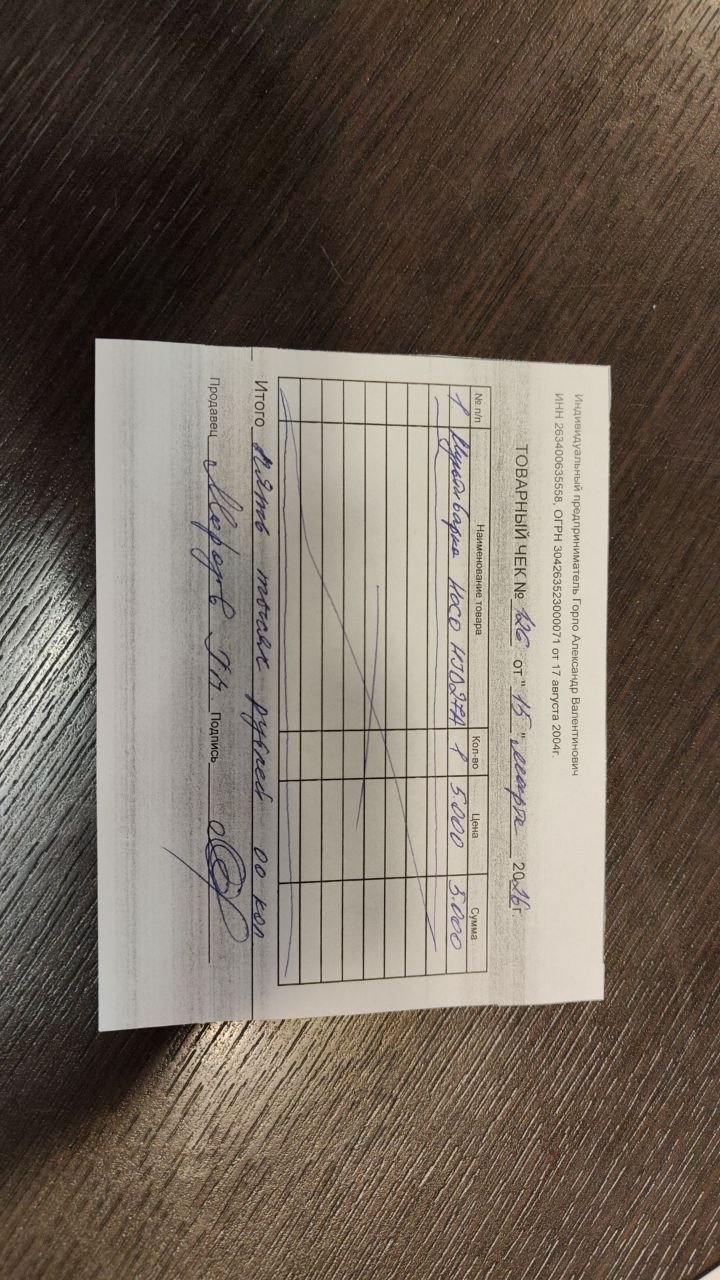 Индивидуальный предприниматель Горло Александр Валентинович
ИНН 263400635558, ОГРН 304263523000071 от 17 августа 2004г.
ТОВАРНЫЙ ЧЕК № 126 от "15" марта 2026г.
№ п/п Наименование товара Кол-во Цена Сумма
1 Мультиварка 1 5.000 5.000
Итого пять тысяч рублей 00 коп
Продавец Подпись